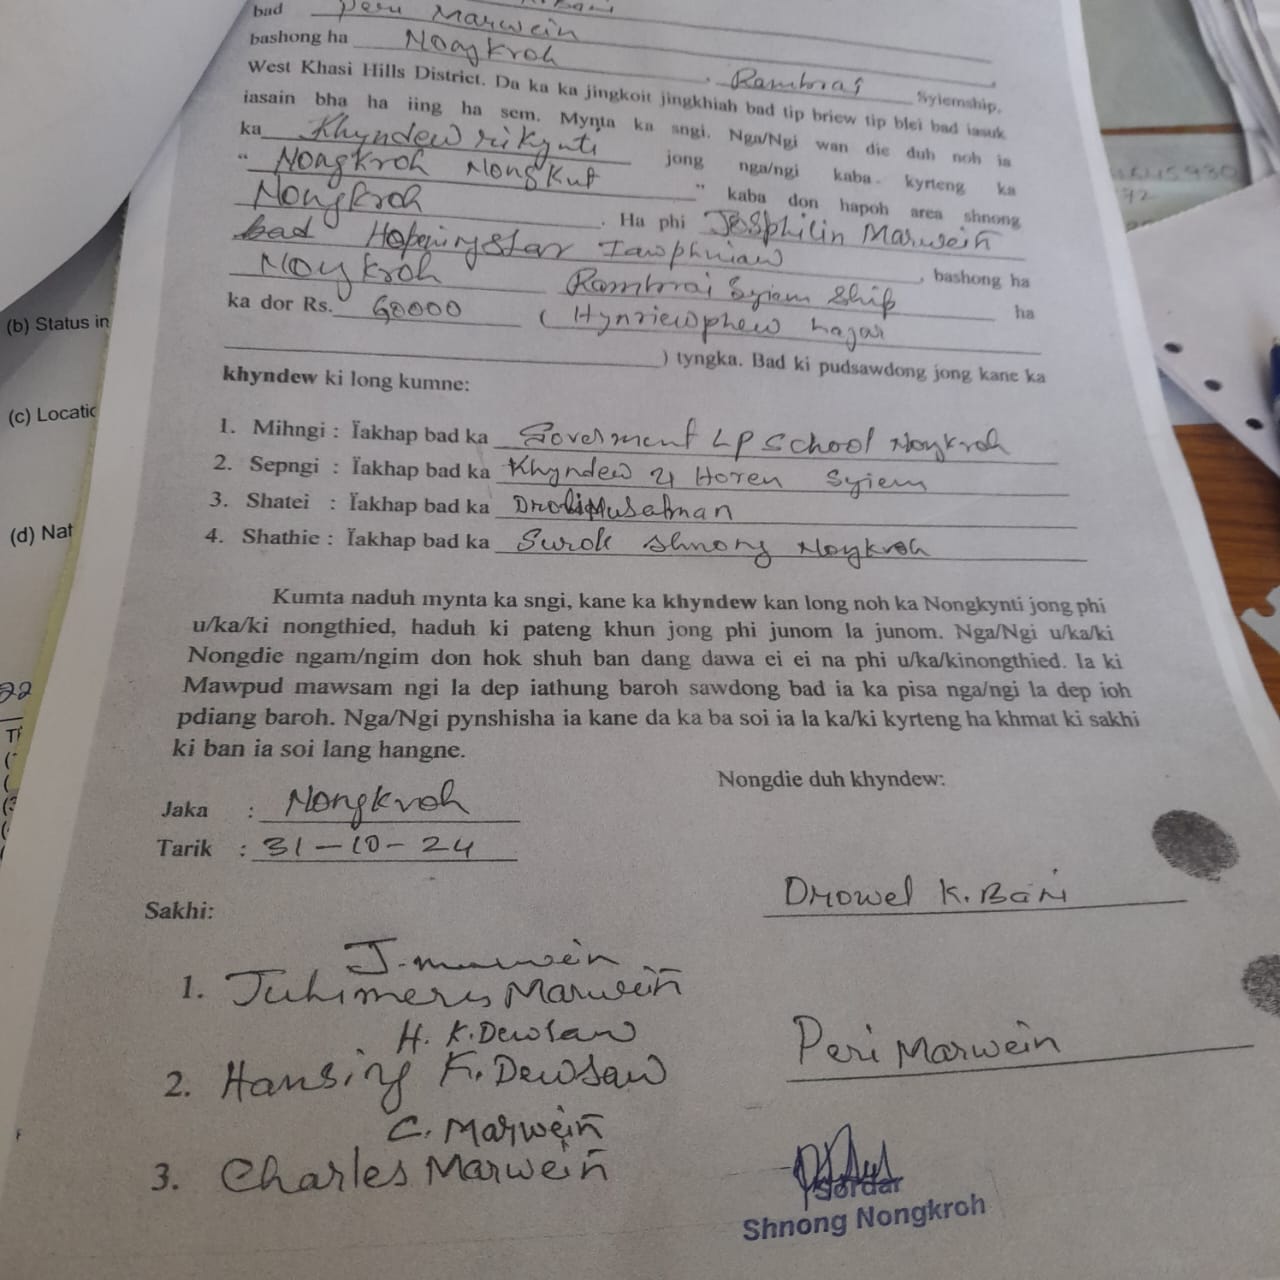 bad Peri Marwein
bashong ha Nongkroh , Rambrai Syiemship,
West Khasi Hills District. Da ka ka jingkoit jingkhiah bad tip briew tip blei bad iasuk
iasain bha ha iing ha sem. Mynta ka sngi. Nga/Ngi wan die duh noh ia
ka Khyndew ri Kynti jong nga/ngi kaba kyrteng ka
“ Nongkroh Nongkut ” kaba don hapoh area shnong
Nongkroh . Ha phi Jessphilin Marwein
bad Hopeningstar Iawphniaw , bashong ha
Nongkroh Rambrai Syiem Ship ha
ka dor Rs. 60000 ( Hynriewphew hajar
) tyngka. Bad ki pudsawdong jong kane ka
khyndew ki long kumne:
1. Mihngi : Ïakhap bad ka Goverment LP School Nongkroh
2. Sepngi : Ïakhap bad ka Khyndew u Horen Syiem
3. Shatei : Ïakhap bad ka
4. Shathie : Ïakhap bad ka Surok Shnong Nongkroh
Kumta naduh mynta ka sngi, kane ka khyndew kan long noh ka Nongkynti jong phi
u/ka/ki nongthied, haduh ki pateng khun jong phi junom la junom. Nga/Ngi u/ka/ki
Nongdie ngam/ngim don hok shuh ban dang dawa ei ei na phi u/ka/kinongthied. Ia ki
Mawpud mawsam ngi la dep iathung baroh sawdong bad ia ka pisa nga/ngi la dep ioh
pdiang baroh. Nga/Ngi pynshisha ia kane da ka ba soi ia la ka/ki kyrteng ha khmat ki sakhi
ki ban ia soi lang hangne.
Nongdie duh khyndew:
Jaka : Nongkroh
Tarik : 31-10-24
Drowel K. Bari
Sakhi:
J. marwein
1. Juhimerys Marweiñ
H. K. Dewsaw
Peri Marwein
2. Hansing K. Dewsaw
C. Marweiñ
3. Charles Marweiñ
Sordar
Shnong Nongkroh
(b) Status in
(c) Locatic
(d) Nat
22